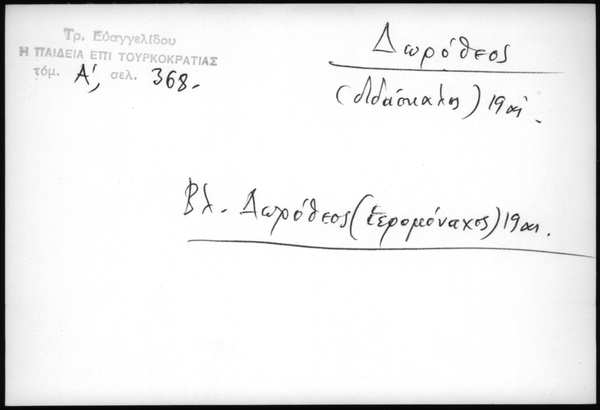 Τρ. Εὐαγγελίδου
Η ΠΑΙΔΕΙΑ ΕΠΙ ΤΟΥΡΚΟΚΡΑΤΙΑΣ
τόμ. Α', σελ. 368.
Δωρόθεος
(διδάσκαλος) 19 αἰ.
Βλ. Δωρόθεος (ἱερομόναχος) 19 αἰ.